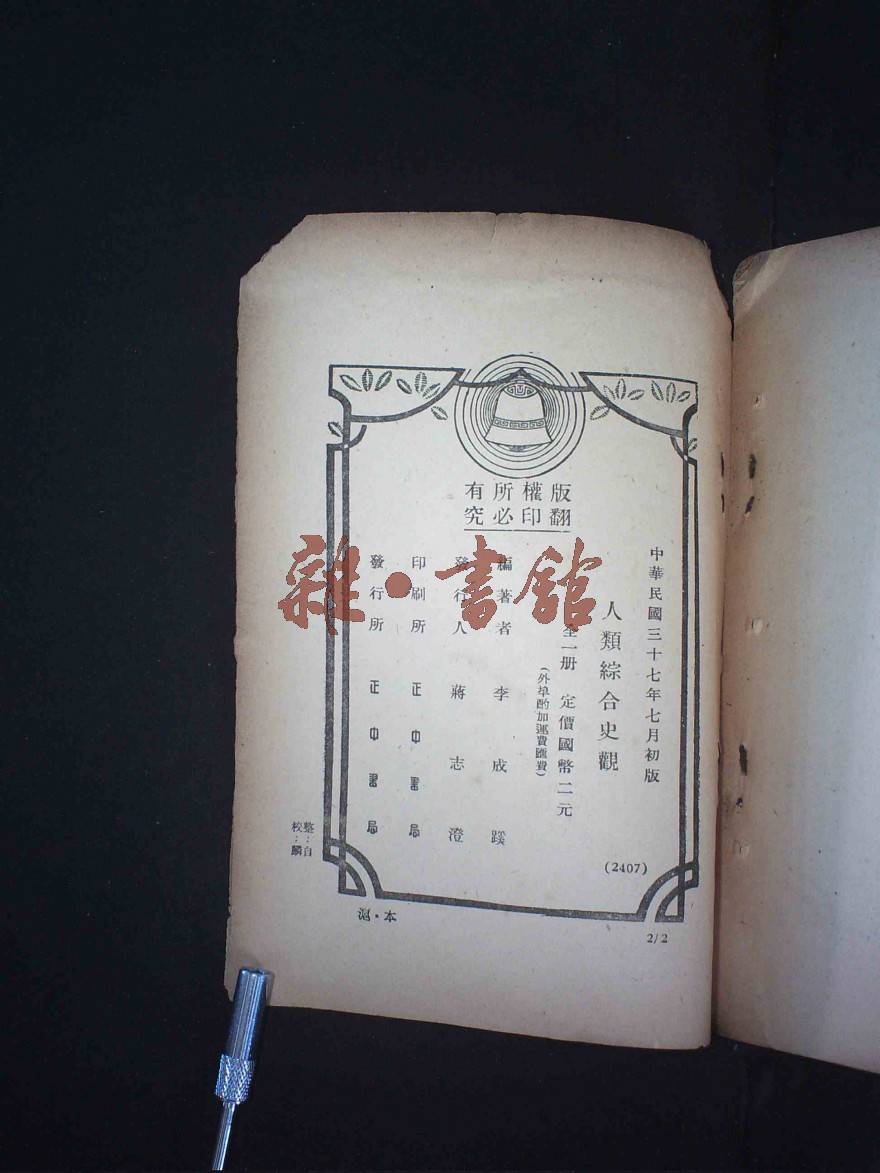 版權所有
翻印必究
中華民國三十七年七月初版
人類綜合史觀
全一册 定價國幣二元
(外埠酌加運費匯費)
編著者 李成蹊
發行人 蔣志澄
印刷所 正中書局
發行所 正中書局
(2407)
整:自
校:麟
滬·本
2/2
雜·書館